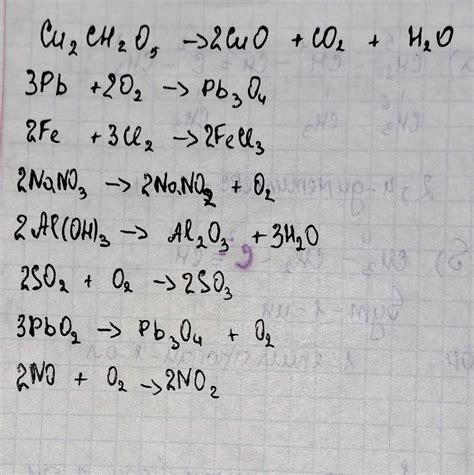 Cu₂CH₂O₅ → 2CuO + CO₂ + H₂O
3Pb + 2O₂ → Pb₃O₄
2Fe + 3Cl₂ → 2FeCl₃
2NaNO₃ → 2NaNO₂ + O₂
2Al(OH)₃ → Al₂O₃ + 3H₂O
2SO₂ + O₂ → 2SO₃
3PbO₂ → Pb₃O₄ + O₂
2NO + O₂ → 2NO₂